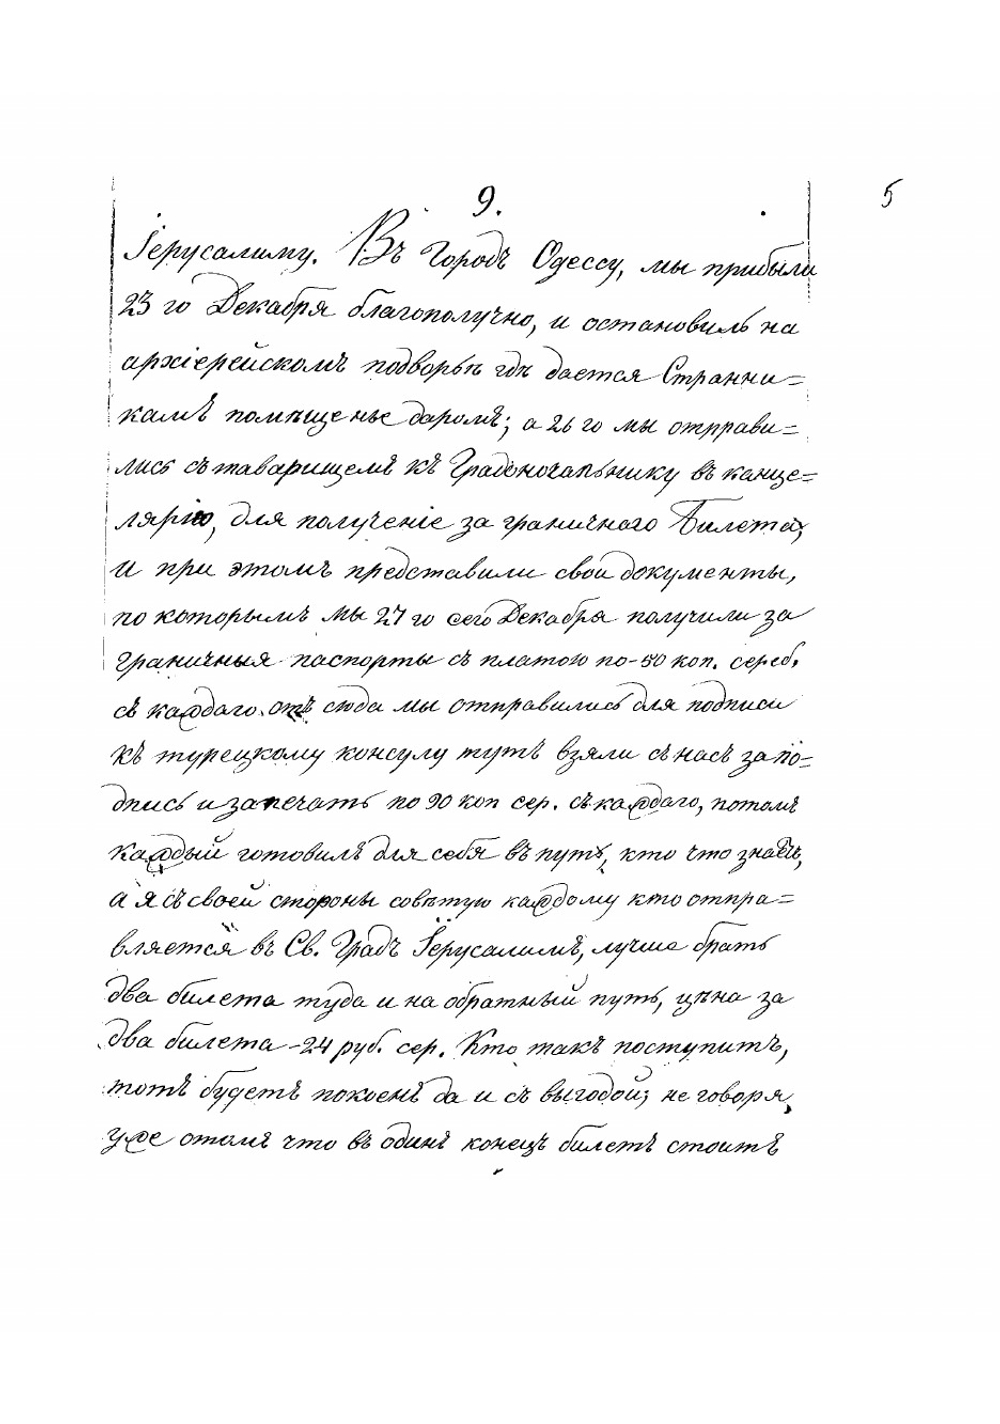 9.
5
Іерусалиму. Въ городъ Одессу, мы прибыли
23 го Декабря благополучно, и остановиль на
архіерейскомъ подворьѣ гдѣ дается Странни=
камъ помѣщенье даромъ; а 26 го мы отправи=
лись съ таварищемъ къ Градоночальнику въ канце=
лярію, для полученіе за граничнаго Билета,
и при этомъ представили свои документы,
по которымъ мы 27 го сего Декабря получили за
граничныя паспорты съ платою по-50 коп. сереб,
съ каждаго. отъ сюда мы отправились для подписи
къ турецкому консулу тутъ взяли съ насъ за по=
дпись и запечать по 90 коп сер. съ каждаго, потомъ
каждый готовилъ для себя въ путь, кто что знаетъ,
а я съ своей стороны совѣтую каждому кто отпра=
вляется въ Св. Градъ Іерусалимъ, лучше брать
два билета туда и на обратный путь, цѣна за
два билета -24 руб. сер. Кто такъ поступитъ,
тотъ будетъ покоенъ да и съ выгодой; не говоря
уже отомъ что въ одинъ конецъ билетъ стоитъ